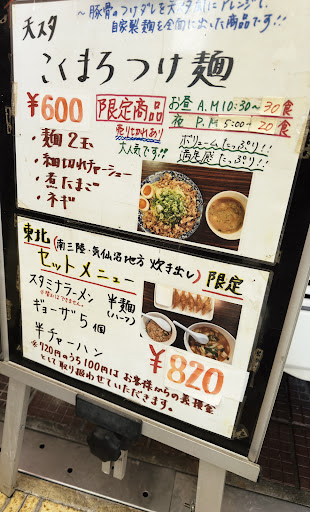 ～豚骨のつけダレを天スタ風にアレンジして、
自家製麺を全面に出した商品です!!
天スタ
こくまろつけ麺
¥600
限定商品
売り切れあり
大人気です!!
お昼 A.M 10:30~30食
夜 P.M 5:00~20食
ボリュームたっぷり!!
満足感たっぷり!!
・麺2玉
・細切れチャーシュー
・煮たまご
・ネギ
東北(南三陸・気仙沼地方 炊き出し)限定
セットメニュー
スタミナラーメン 半麺
(ハーフ)
ギョーザ5個
半チャーハン
¥820
※720円のうち100円は お客様からの義援金
として取り扱わせていただきます。